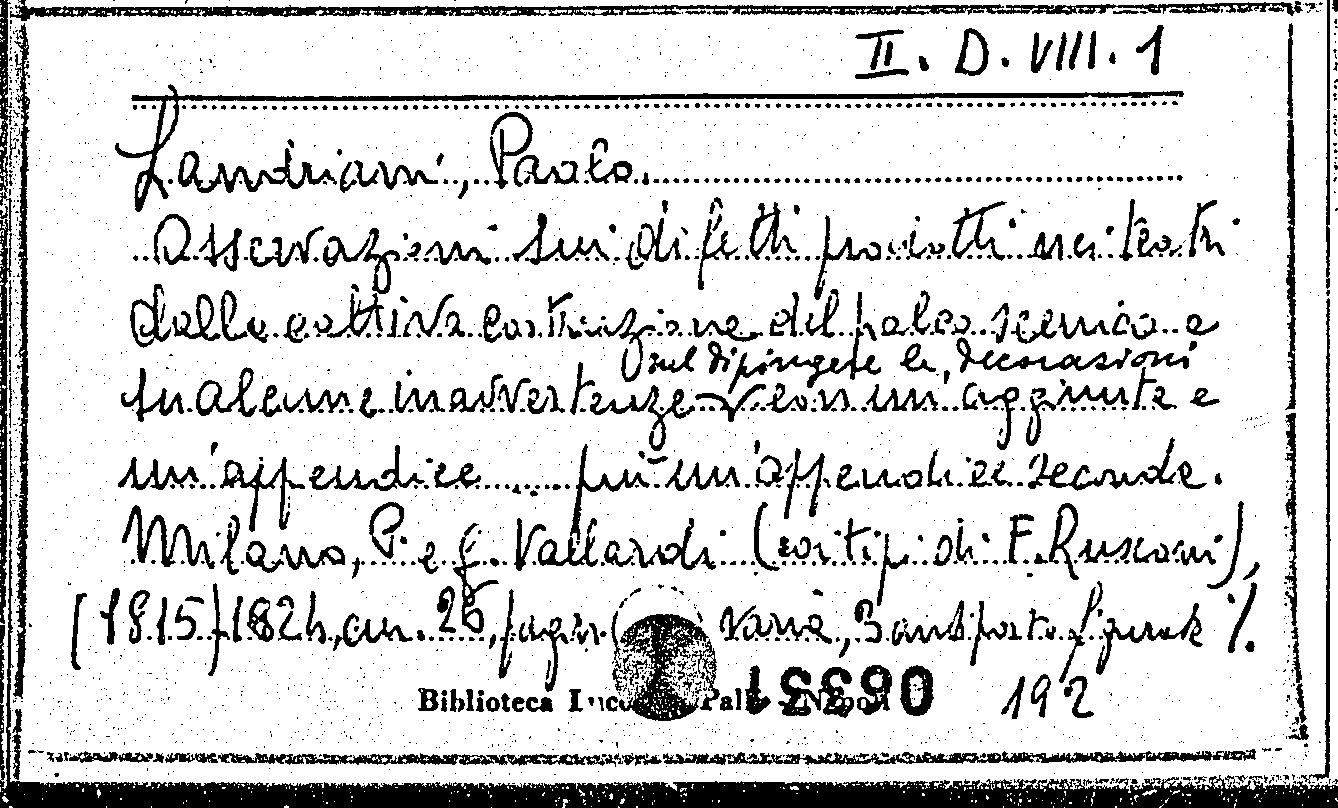 II. D. VIII. 1
Landriani, Paolo.
Osservazioni sui difetti prodotti nei teatri
dalla cattiva costruzione del palco scenico e
sul dipingere le decorazioni
su alcune inavvertenze √ con un'aggiunta e
un'appendice .... più un'appendice seconda.
Milano, P. e G. Vallardi (coi tipi di F. Rusconi),
[1815] 1824, cm. 25, pagin varia, 3 antiporte figurate %.
Biblioteca
192